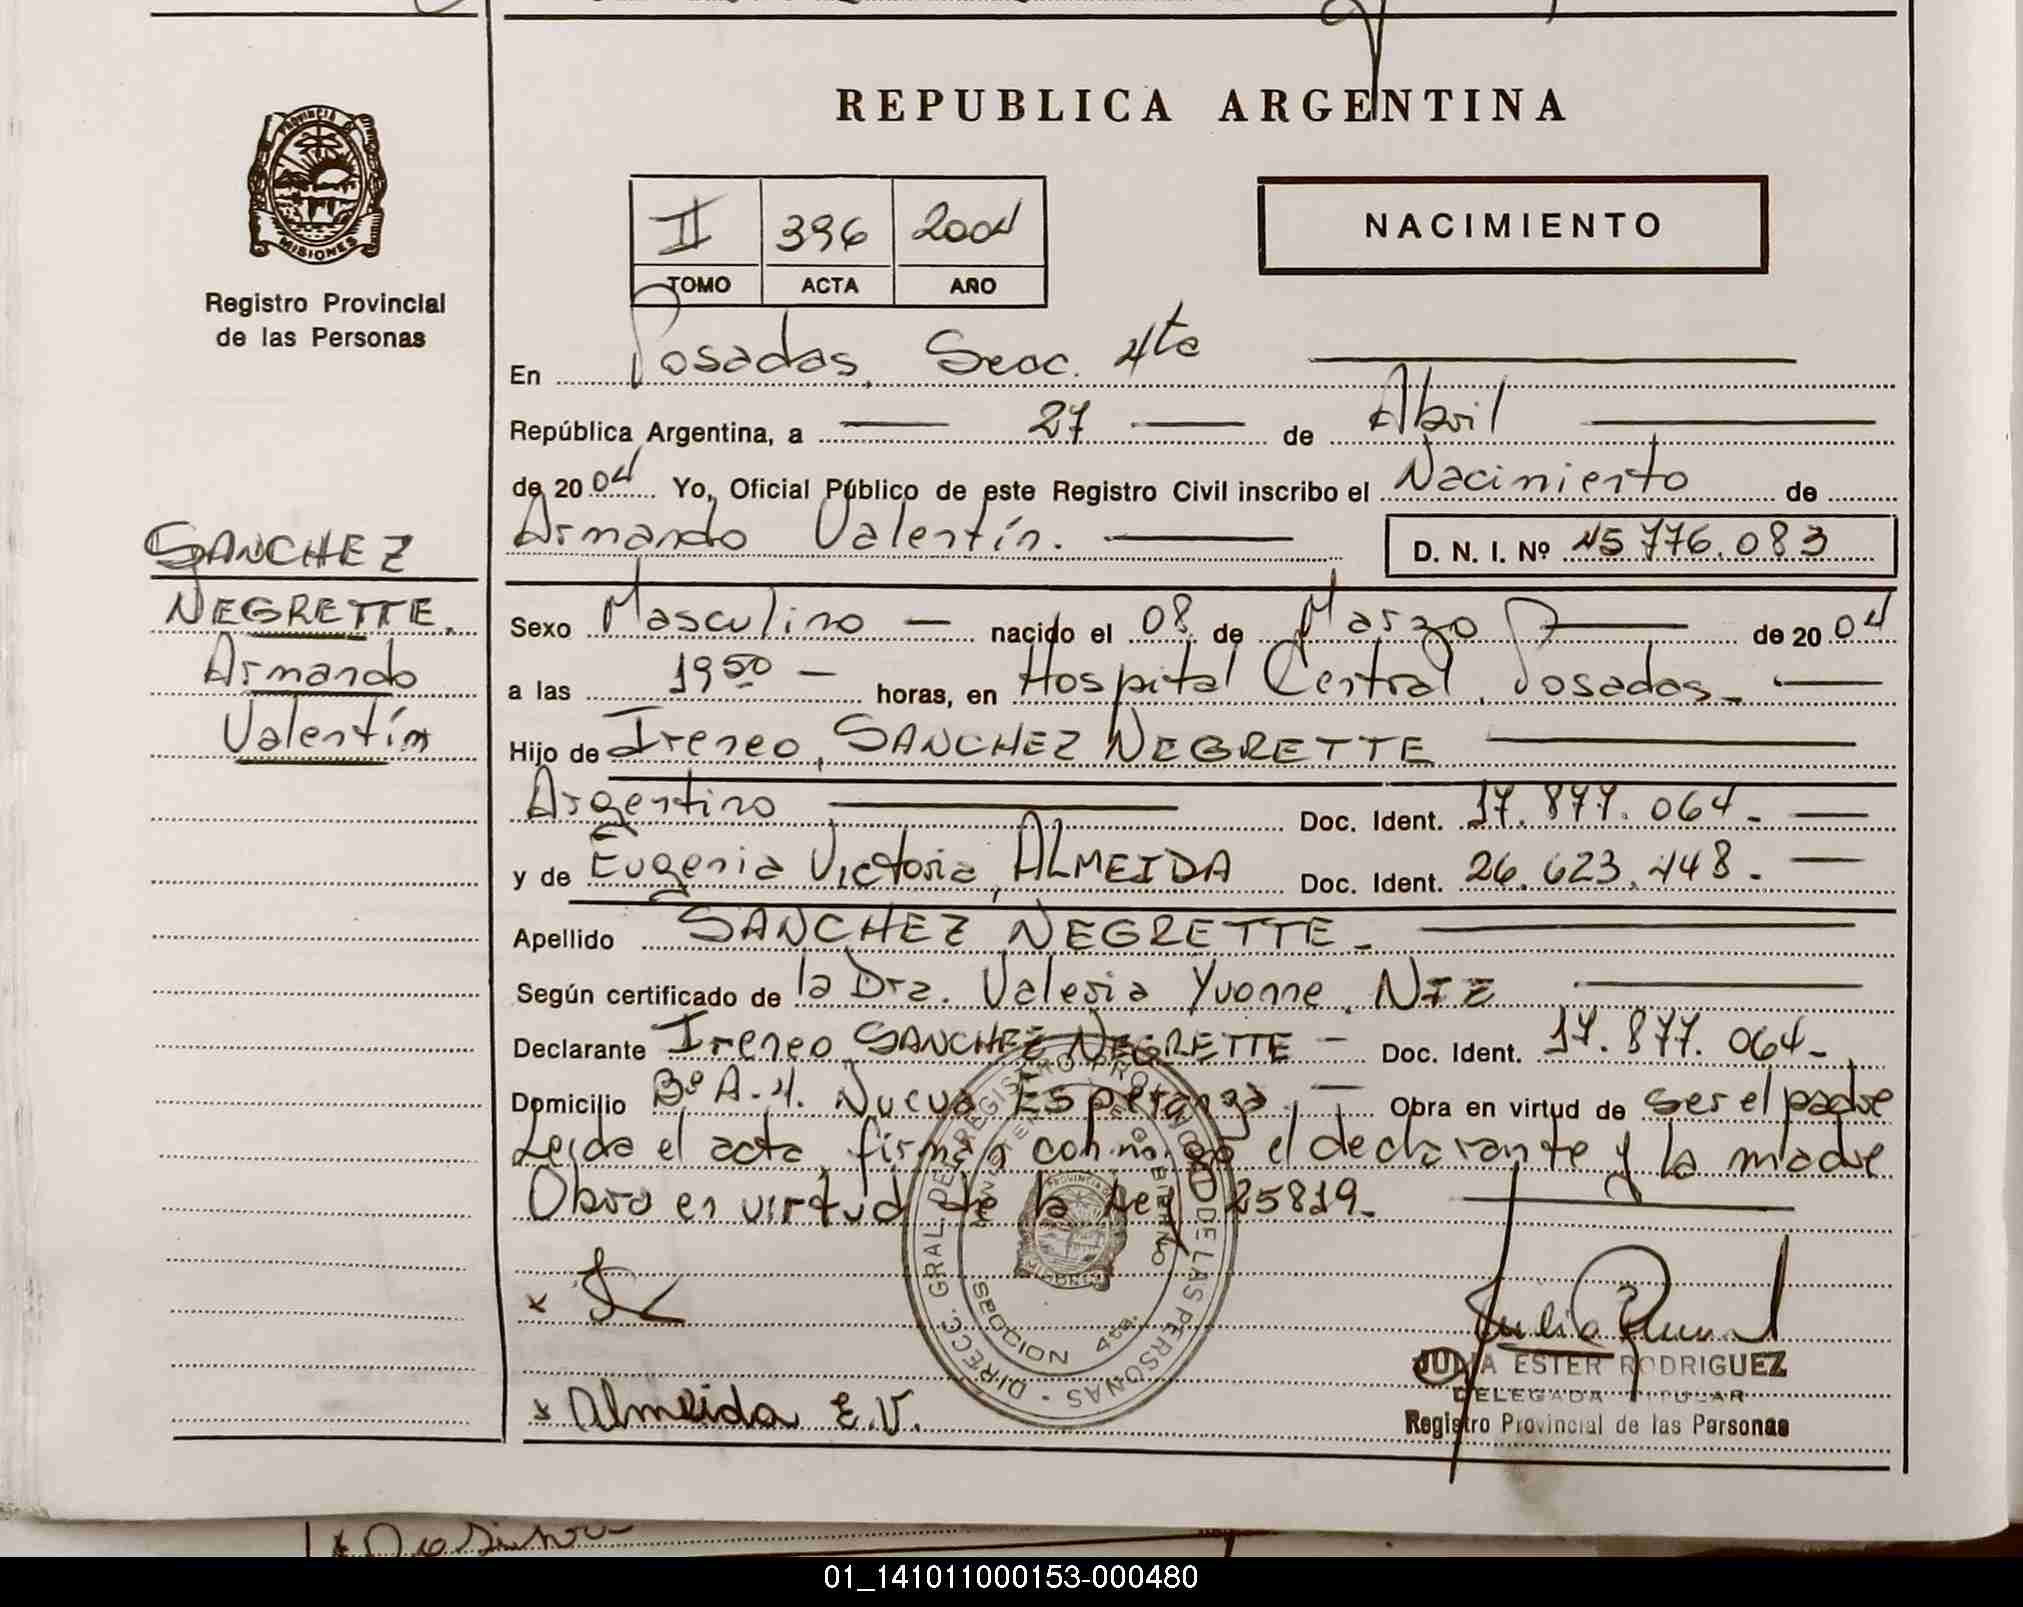 REPUBLICA ARGENTINA
PROVINCIA DE
MISIONES
Registro Provincial
de las Personas
II 396 2004
TOMO ACTA AÑO
NACIMIENTO
En Posadas, Secc. 4ta
República Argentina, a 27 de Abril
de 2004 Yo, Oficial Público de este Registro Civil inscribo el Nacimiento de
Armando Valentín. D. N. I. Nº 45 776.083
SANCHEZ
NEGRETTE.
Armando
Valentín
Sexo Masculino nacido el 08 de Marzo de 2004
a las 19 50 horas, en Hospital Central, Posadas
Hijo de Ireneo, SANCHEZ NEGRETTE
Argentino Doc. Ident. 17.877.064.
y de Eugenia Victoria, ALMEIDA Doc. Ident. 26.623.448.
Apellido SANCHEZ NEGRETTE
Según certificado de la Dra. Valeria Yvonne, NIZ
Declarante Ireneo SANCHEZ NEGRETTE Doc. Ident. 17.877.064
Domicilio Bº A-4. Nueva Esperanza, Obra en virtud de ser el padre
Leida el acta, firman conmigo el declarante y la madre
Obra en virtud de la Ley 25819.
DIRECC. GRAL. DEL REGISTRO PROVINCIAL DE LAS PERSONAS
MINISTERIO DE GOBIERNO
PROVINCIA DE
MISIONES
SECCION 4ta.
x
x Almeida E.V.
JULIA ESTER RODRIGUEZ
DELEGADA TITULAR
Registro Provincial de las Personas
01_141011000153-000480